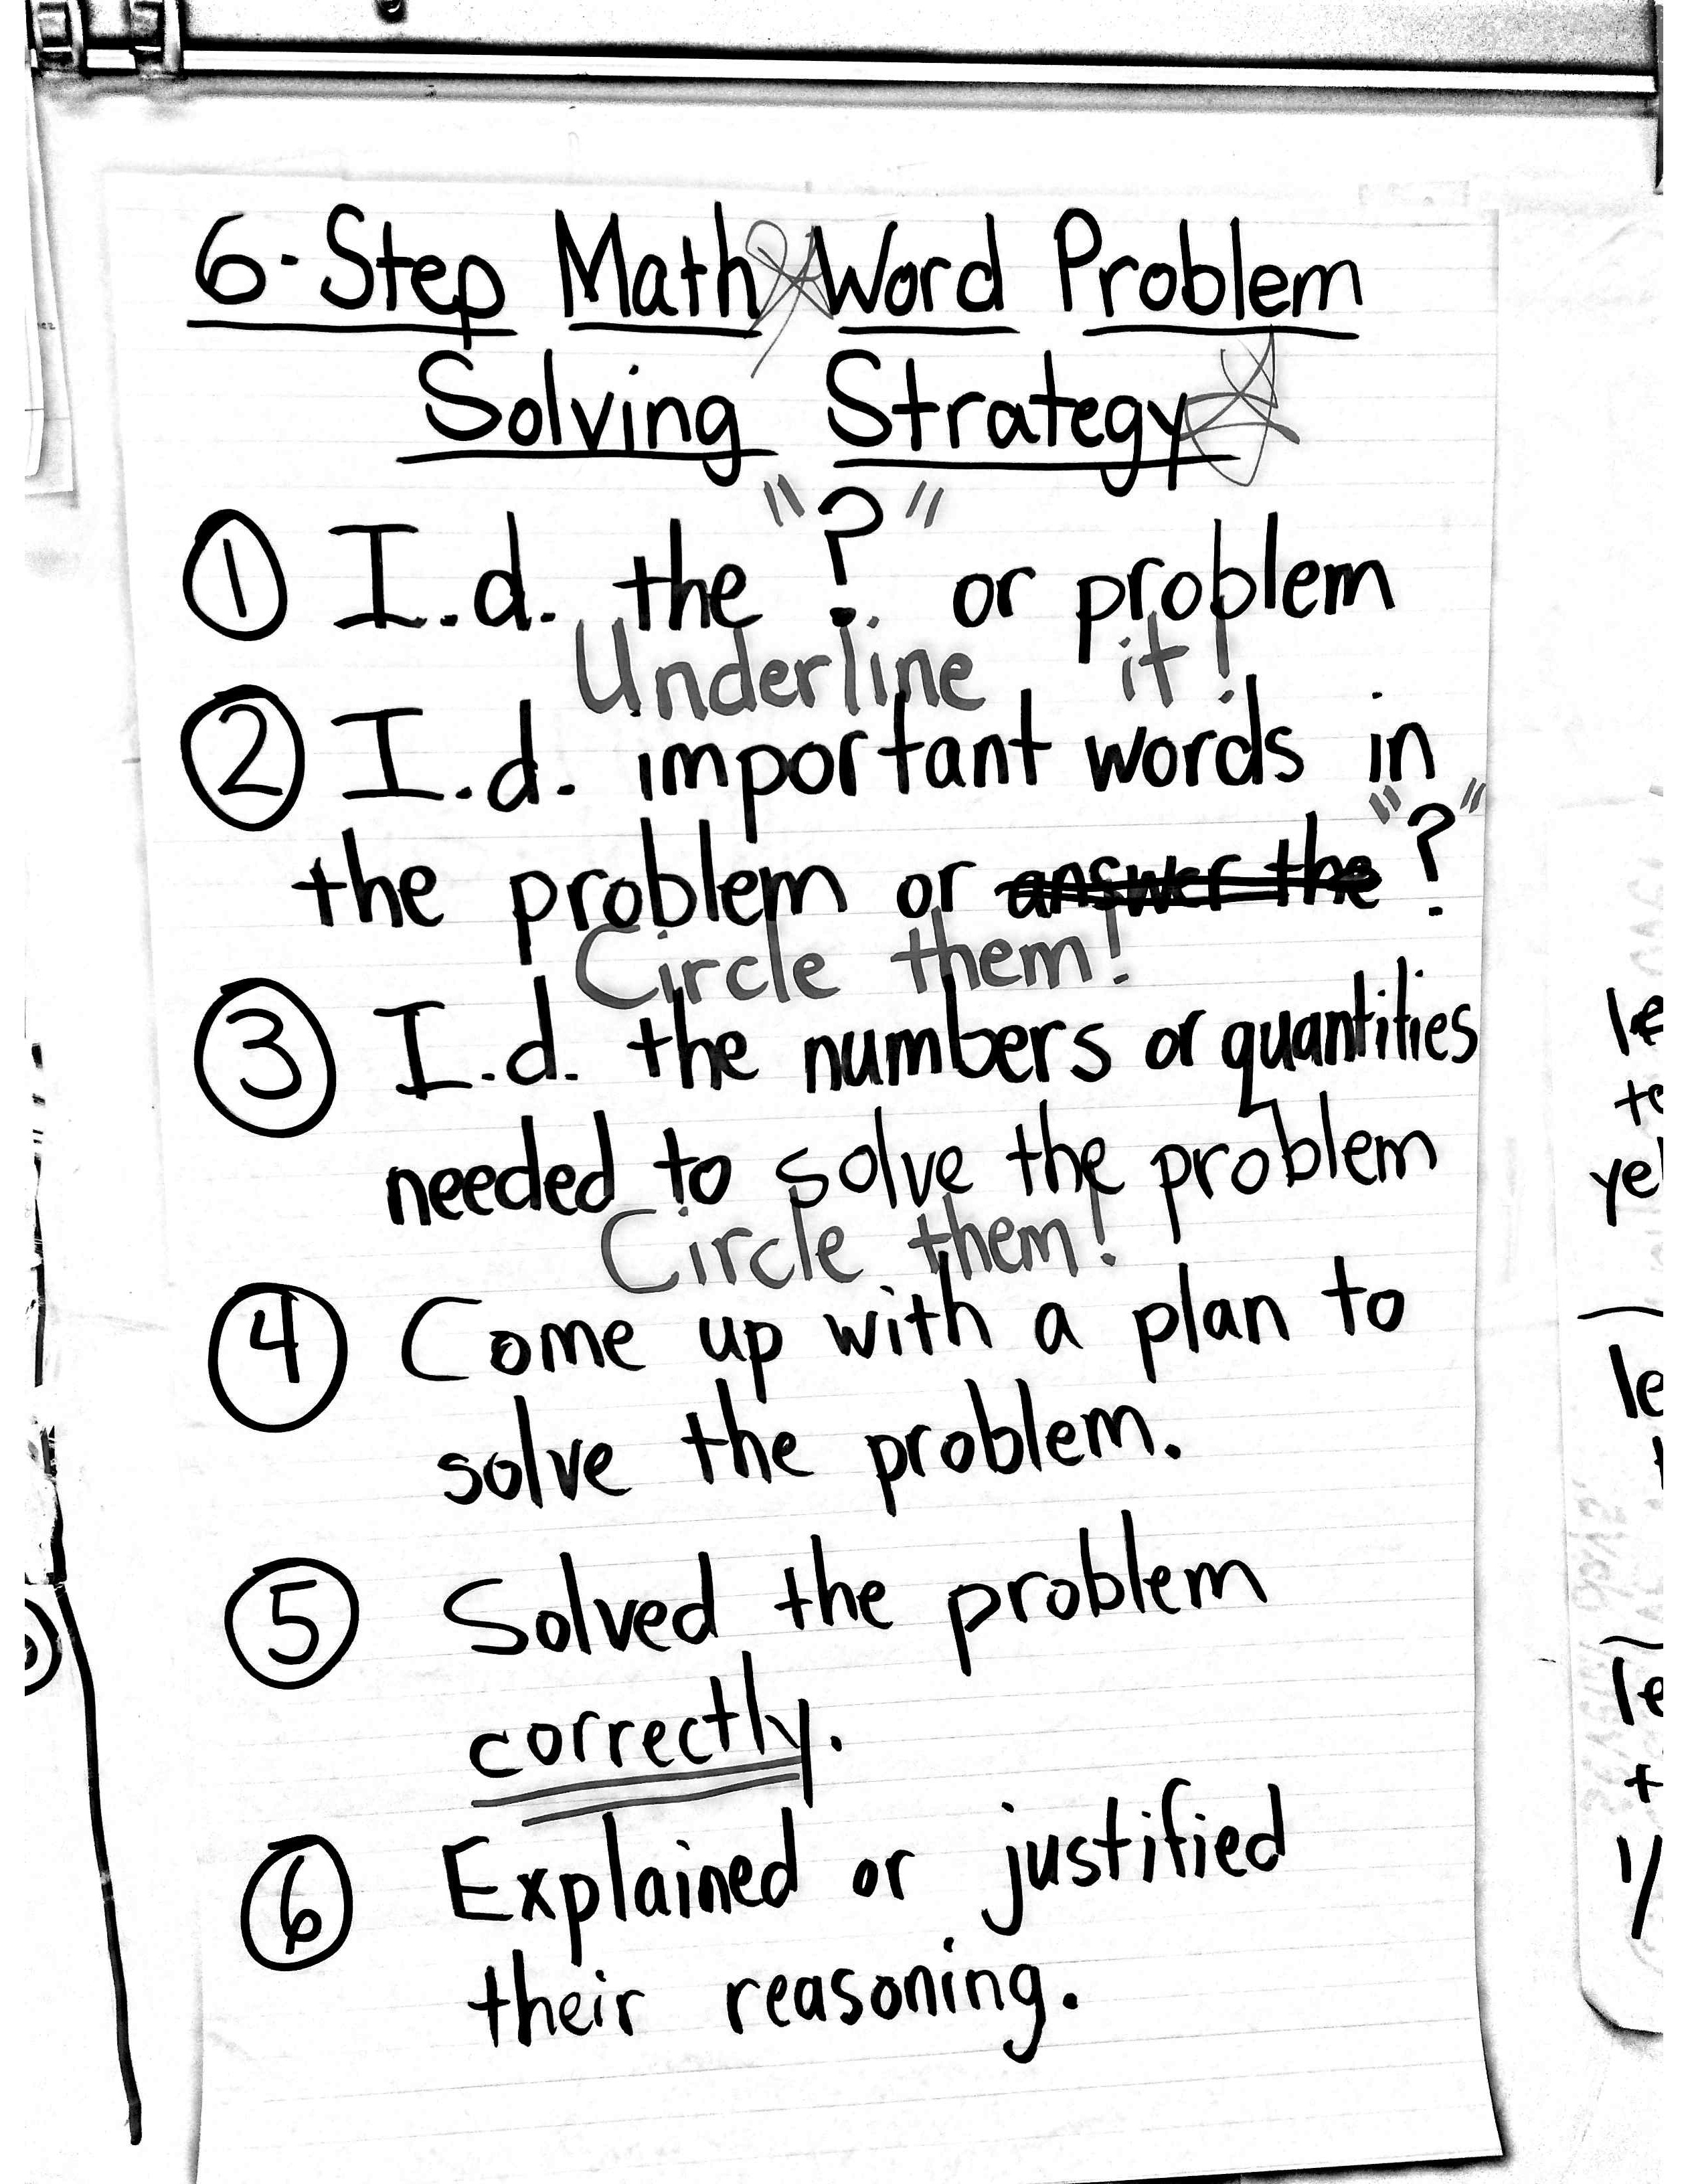 6-Step Math Word Problem
Solving Strategy
① I.d. the "?" or problem
Underline it!
② I.d. important words in
the problem or answer the "?"
Circle them!
③ I.d. the numbers or quantities
needed to solve the problem
Circle them!
④ Come up with a plan to
solve the problem.
⑤ Solved the problem
correctly.
⑥ Explained or justified
their reasoning.